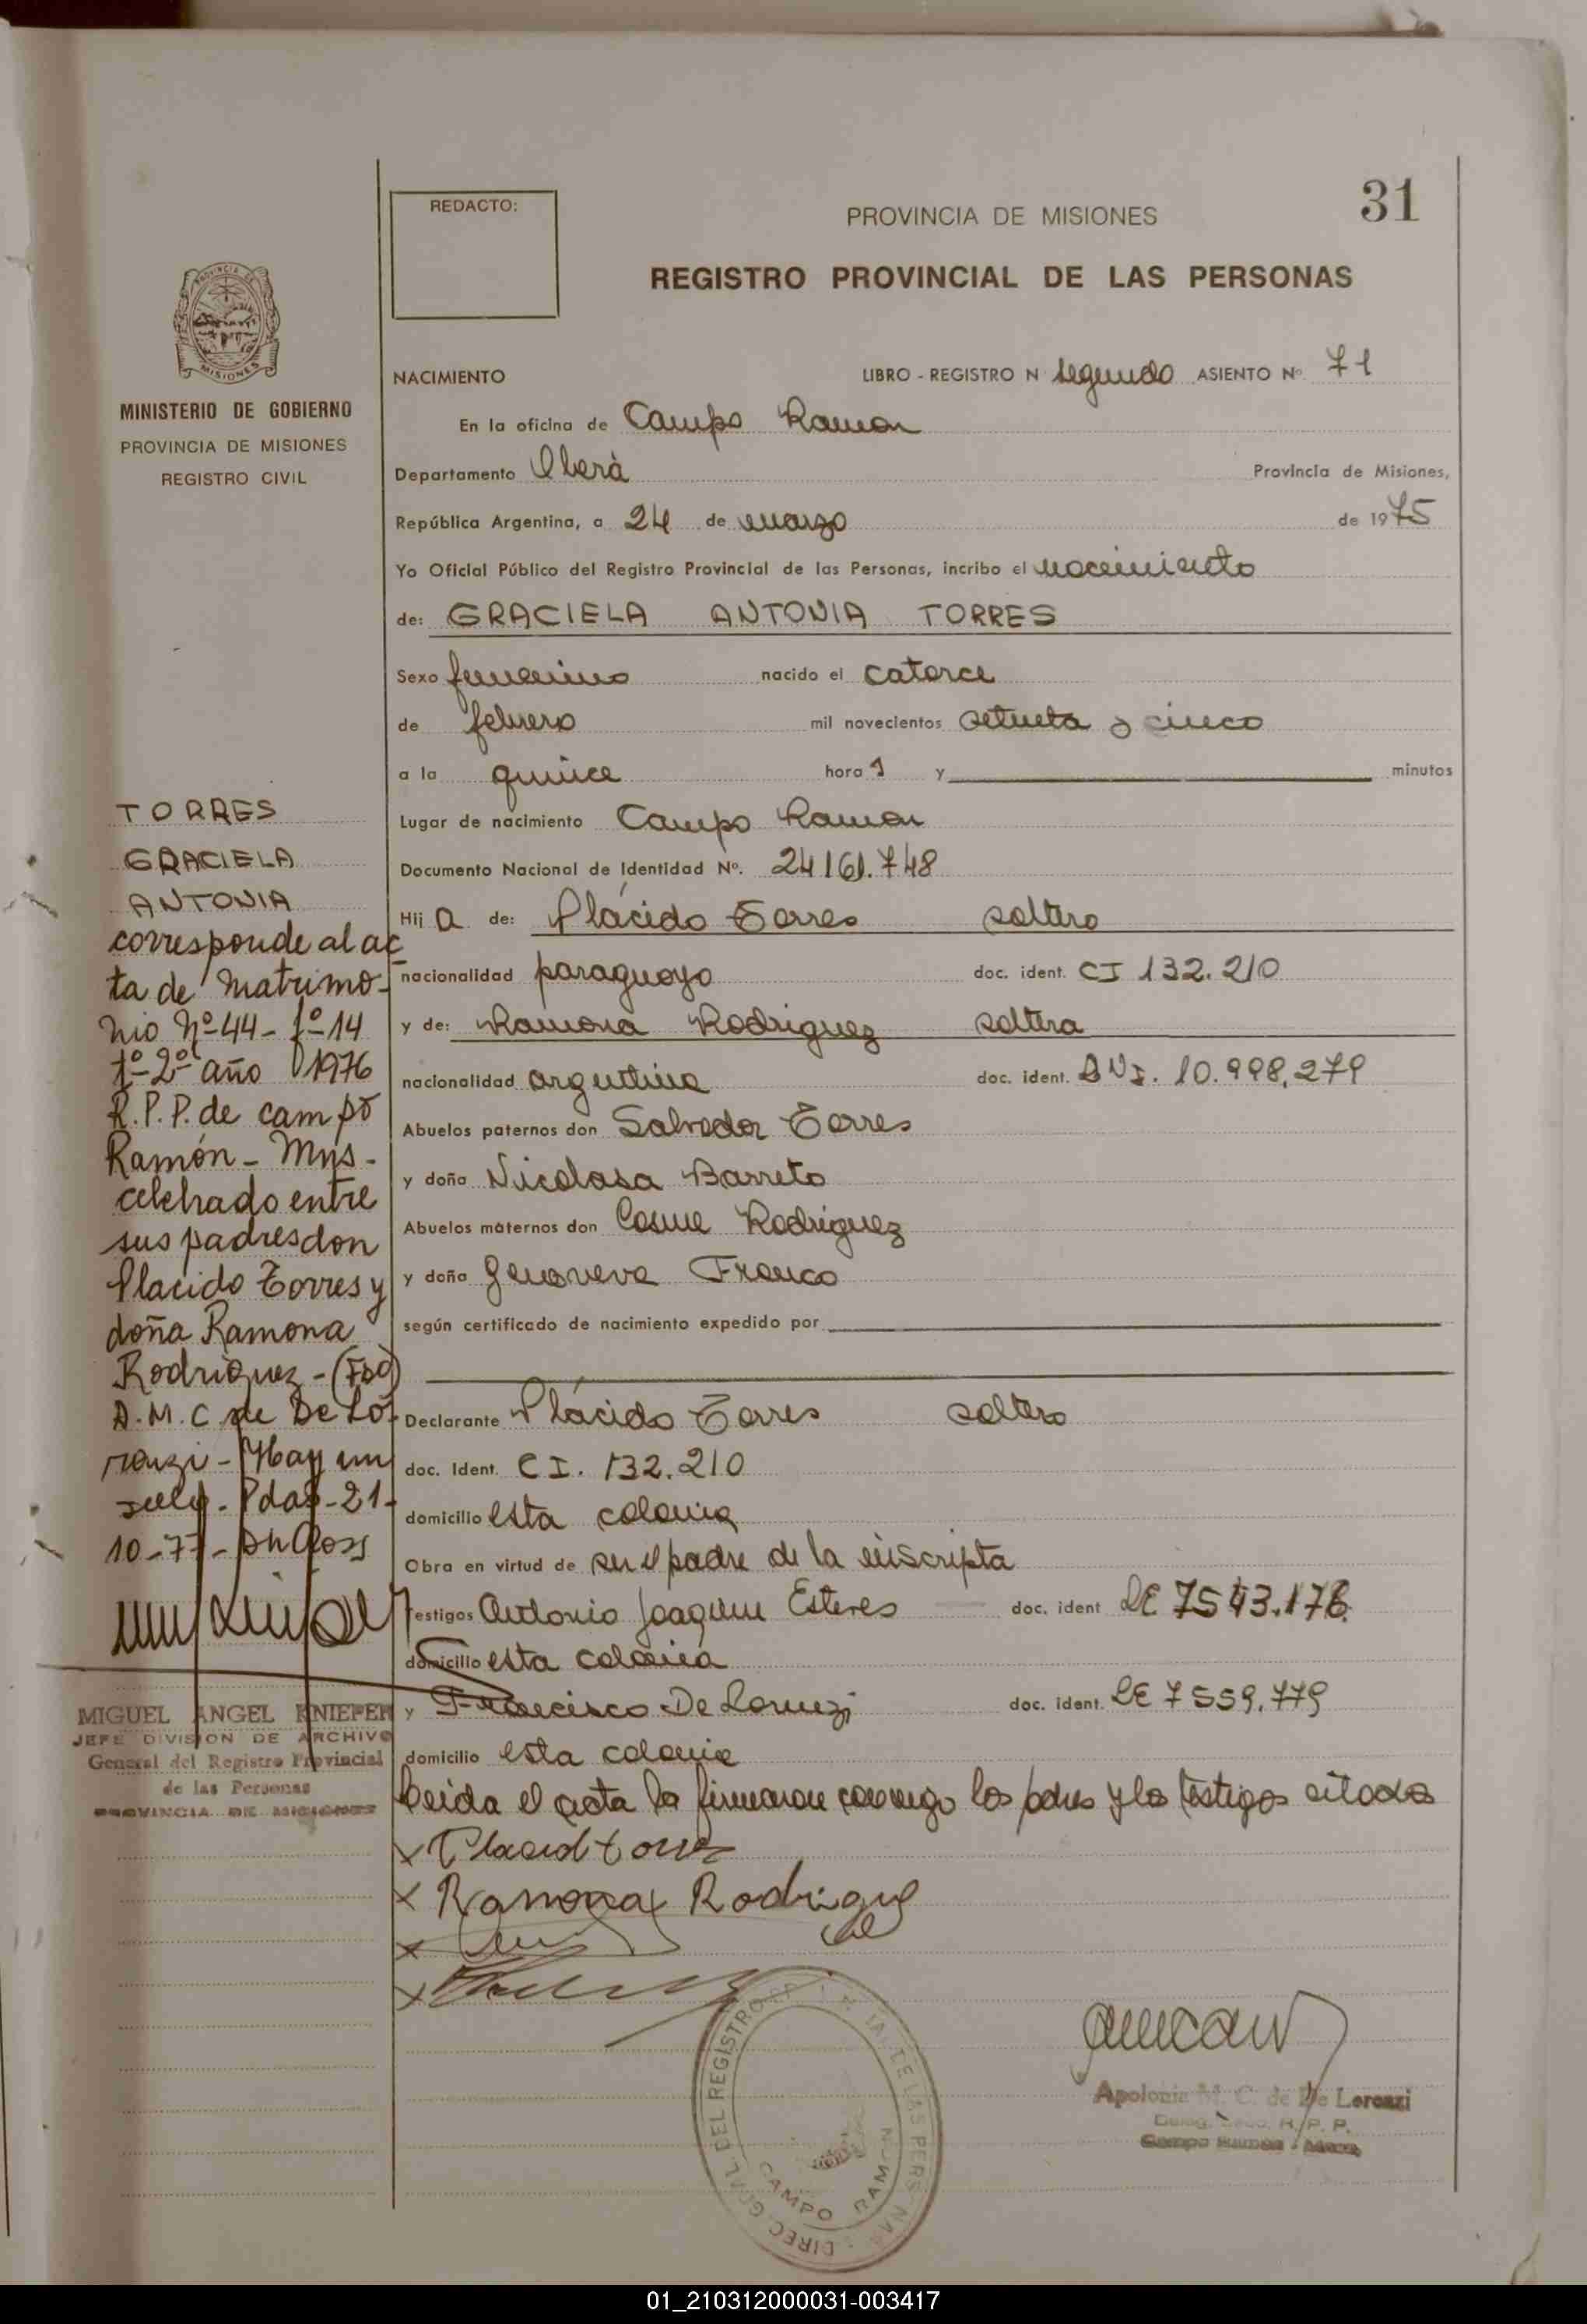 31
REDACTO:
PROVINCIA DE MISIONES
REGISTRO PROVINCIAL DE LAS PERSONAS
MISIONES
MINISTERIO DE GOBIERNO
PROVINCIA DE MISIONES
REGISTRO CIVIL
NACIMIENTO LIBRO - REGISTRO N segundo ASIENTO Nº 71
En la oficina de Campo Ramon
Departamento Oberà Provincia de Misiones,
República Argentina, a 24 de marzo de 1975
Yo Oficial Público del Registro Provincial de las Personas, incribo el nacimiento
de: GRACIELA ANTONIA TORRES
Sexo femenino nacido el catorce
de febrero mil novecientos setenta y cinco
a la quince hora s y minutos
Lugar de nacimiento Campo Ramon
Documento Nacional de Identidad Nº. 24161.748
Hij a de: Plácido Torres soltero
nacionalidad paraguayo doc. ident. CI 132.210
y de: Ramona Rodriguez soltera
nacionalidad argentina doc. ident. DNI. 10.998.279
Abuelos paternos don Salvador Torres
y doña Nicolasa Barreto
Abuelos maternos don Cosme Rodriguez
y doña Genoveva Franco
según certificado de nacimiento expedido por
Declarante Plácido Torres soltero
doc. Ident. CI. 132.210
domicilio esta colonia
Obra en virtud de ser el padre de la inscripta
Testigos Antonio Joaquim Esteres doc. ident LE 7543.178.
domicilio esta colonia
y Francisco De Lorenzi doc. ident. LE 7559.779
domicilio esta colonia
Leida el acta la firmaron conmigo los padres y los testigos citados
x Placid torrez
x Ramona Rodrigue
x
x
TORRES
GRACIELA
ANTONIA
corresponde al ac
ta de Matrimo-
nio Nº-44- fº-14
tº-2º año 1976
R.P.P. de campo
Ramón - Mns-
celebrado entre
sus padres don
Placido Torres y
doña Ramona
Rodriguez - (Fdo)
A.M.C de De Lo-
renzi - Hay un
sello - Pdas - 21-
10-77-
MIGUEL ANGEL KNIEPER
JEFE DIVISION DE ARCHIVO
General del Registro Provincial
de las Personas
PROVINCIA DE MISIONES
DIREC. GRAL. DEL REGISTRO DE LAS PERSONAS
CAMPO RAMON
Apolonia M. C. de De Lorenzi
R. P. P.
Campo Ramon - Mnes.
01_210312000031-003417